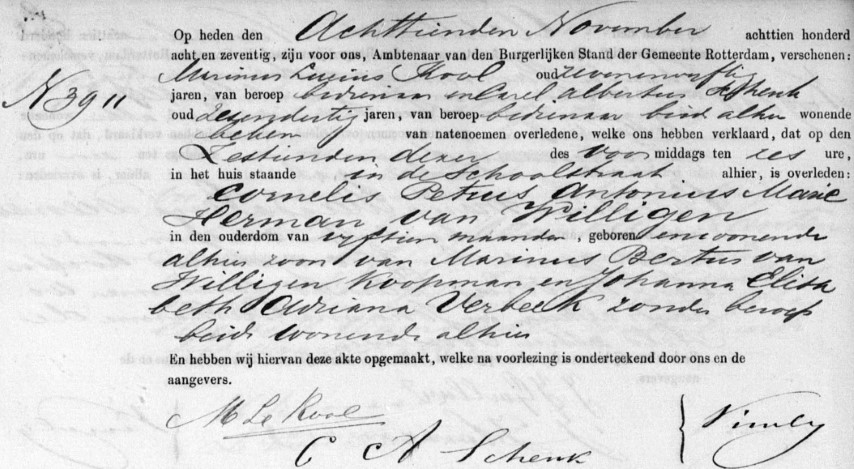 Op heden den Achttienden November achttien honderd
acht en zeventig, zijn voor ons, Ambtenaar van den Burgerlijken Stand der Gemeente Rotterdam, verschenen:
Marinus Lucius Kool oud zevenenveertig
N 3911
jaren, van beroep bedienaar en Carel Albertus Schenk
oud zesendertig jaren, van beroep bedienaar beid alhier wonende
beken van natenoemen overledene, welke ons hebben verklaard, dat op den
Zestienden dezer des voor middags ten zes ure,
in het huis staande in de Schoolstraat alhier, is overleden:
Cornelis Petrus Antonius Marie
Herman van Willigen
in den ouderdom van vyftien maanden, geboren en wonende
alhier zoon van Marinus Bertus van
Willigen Koopman en Johanna Elisa
beth Adriana Verbeek zonder beroep
beide wonende alhier
En hebben wij hiervan deze akte opgemaakt, welke na voorlezing is onderteekend door ons en de
aangevers.
M L Kool
C A Schenk